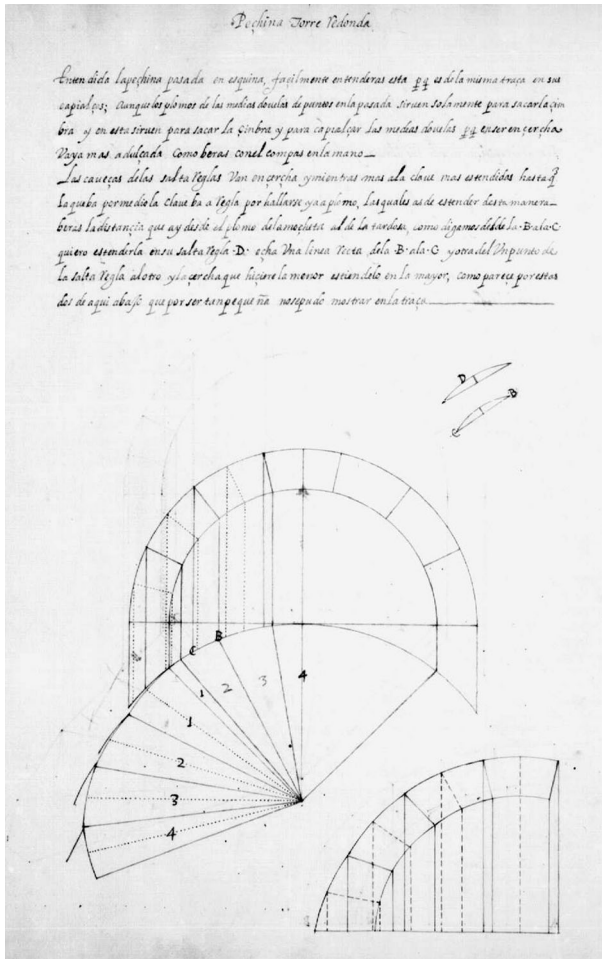 Pechina Torre Redonda
Entendida lapechina pasada en esquina, façilmente entenderas esta pq es de la misma traça en sus
capialços; Aunque los plomos de las medias dovelas de puntos en la pasada sirven solamente para sacar la çim
bra y en esta sirven para sacar la çinbra y para capialçar las medias dovelas pq en ser en çercha
Vaya mas adulçada Como beras con el compas en la mano
Las caveças de las saltareglas Van en çercha y mientras mas a la clave mas estendidos hasta q̃
la que ba por medio la clave ba a regla por hallarse ya a plomo, Las quales as de estender desta manera
beras la distançia que ay desde el plomo de la mocheta al de la tardosa, como digamos desde la .B. a la .C.
quiero estenderla en su saltaregla .D. echa Una linea recta de la .B. a la .C. y otra del Un punto de
la saltaregla al otro y la çercha que hiçiere la menor estiendelo en la mayor, como pareçe por esta
dos de aqui abajo que por ser tan pequeña no se pudo mostrar en la traça
D
B
C
B
C
1
2
3
4
1
2
3
4